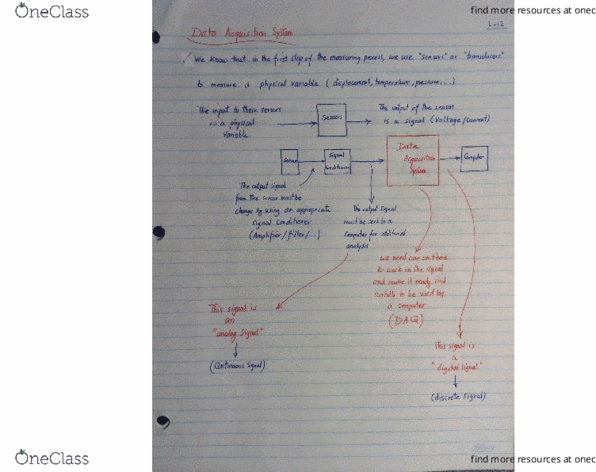 OneClass
find more resources at onec
L-12
Data Acquisition System
We know that in the first step of the measuring process, we use "sensors" or "transducers"
to measure a physical variable (displacement, temperature, pressure, ...)
The input to these sensors
is a physical
variable
Sensors
The output of the sensor
is a signal (voltage/current)
Sensor
Signal
Conditioner
Data
Acquisition
System
Computer
The output signal
from the sensor must be
change by using an appropriate
Signal Conditioner
(Amplifier/filter/...)
The output signal
must be sent to a
Computer for additional
analysis
we need one
to work on the signal
and make it ready and
suitable to be used by
a computer
(DAQ)
This signal is
an
"analog signal"
(Continuous signal)
This signal is
a
"digital signal"
(discrete signal)
OneClass
find more resources at onec